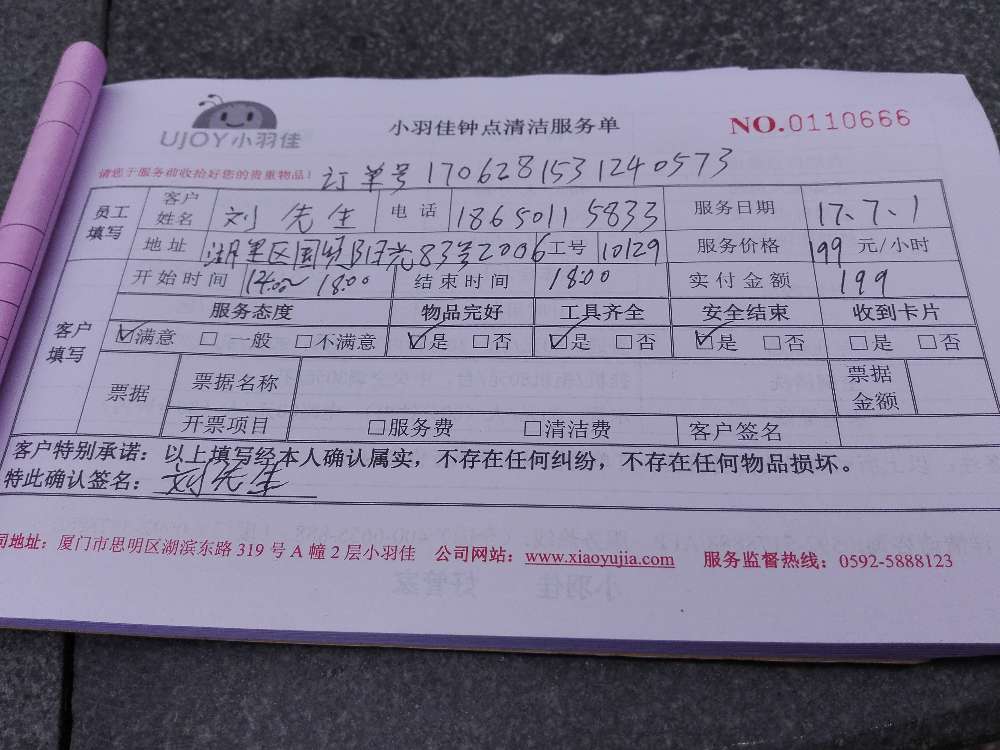 UJOY小羽佳
小羽佳钟点清洁服务单
NO.0110666
请您于服务前收拾好您的贵重物品!
订单号1706281531240573
员工填写 客户姓名 刘先生 电话 18650115833 服务日期 17、7、1
地址 湖里区国贸阳光83号2006 工号 10129 服务价格 199 元/小时
开始时间 14:00~18:00 结束时间 18:00 实付金额 199
客户填写 服务态度 物品完好 工具齐全 安全结束 收到卡片
☑满意 □一般 □不满意 ☑是 □否 ☑是 □否 ☑是 □否 □是 □否
票据 票据名称 票据金额
开票项目 □服务费 □清洁费 客户签名
客户特别承诺:以上填写经本人确认属实,不存在任何纠纷,不存在任何物品损坏。
特此确认签名:刘先生
司地址:厦门市思明区湖滨东路319号A幢2层小羽佳 公司网站:www.xiaoyujia.com 服务监督热线:0592-5888123